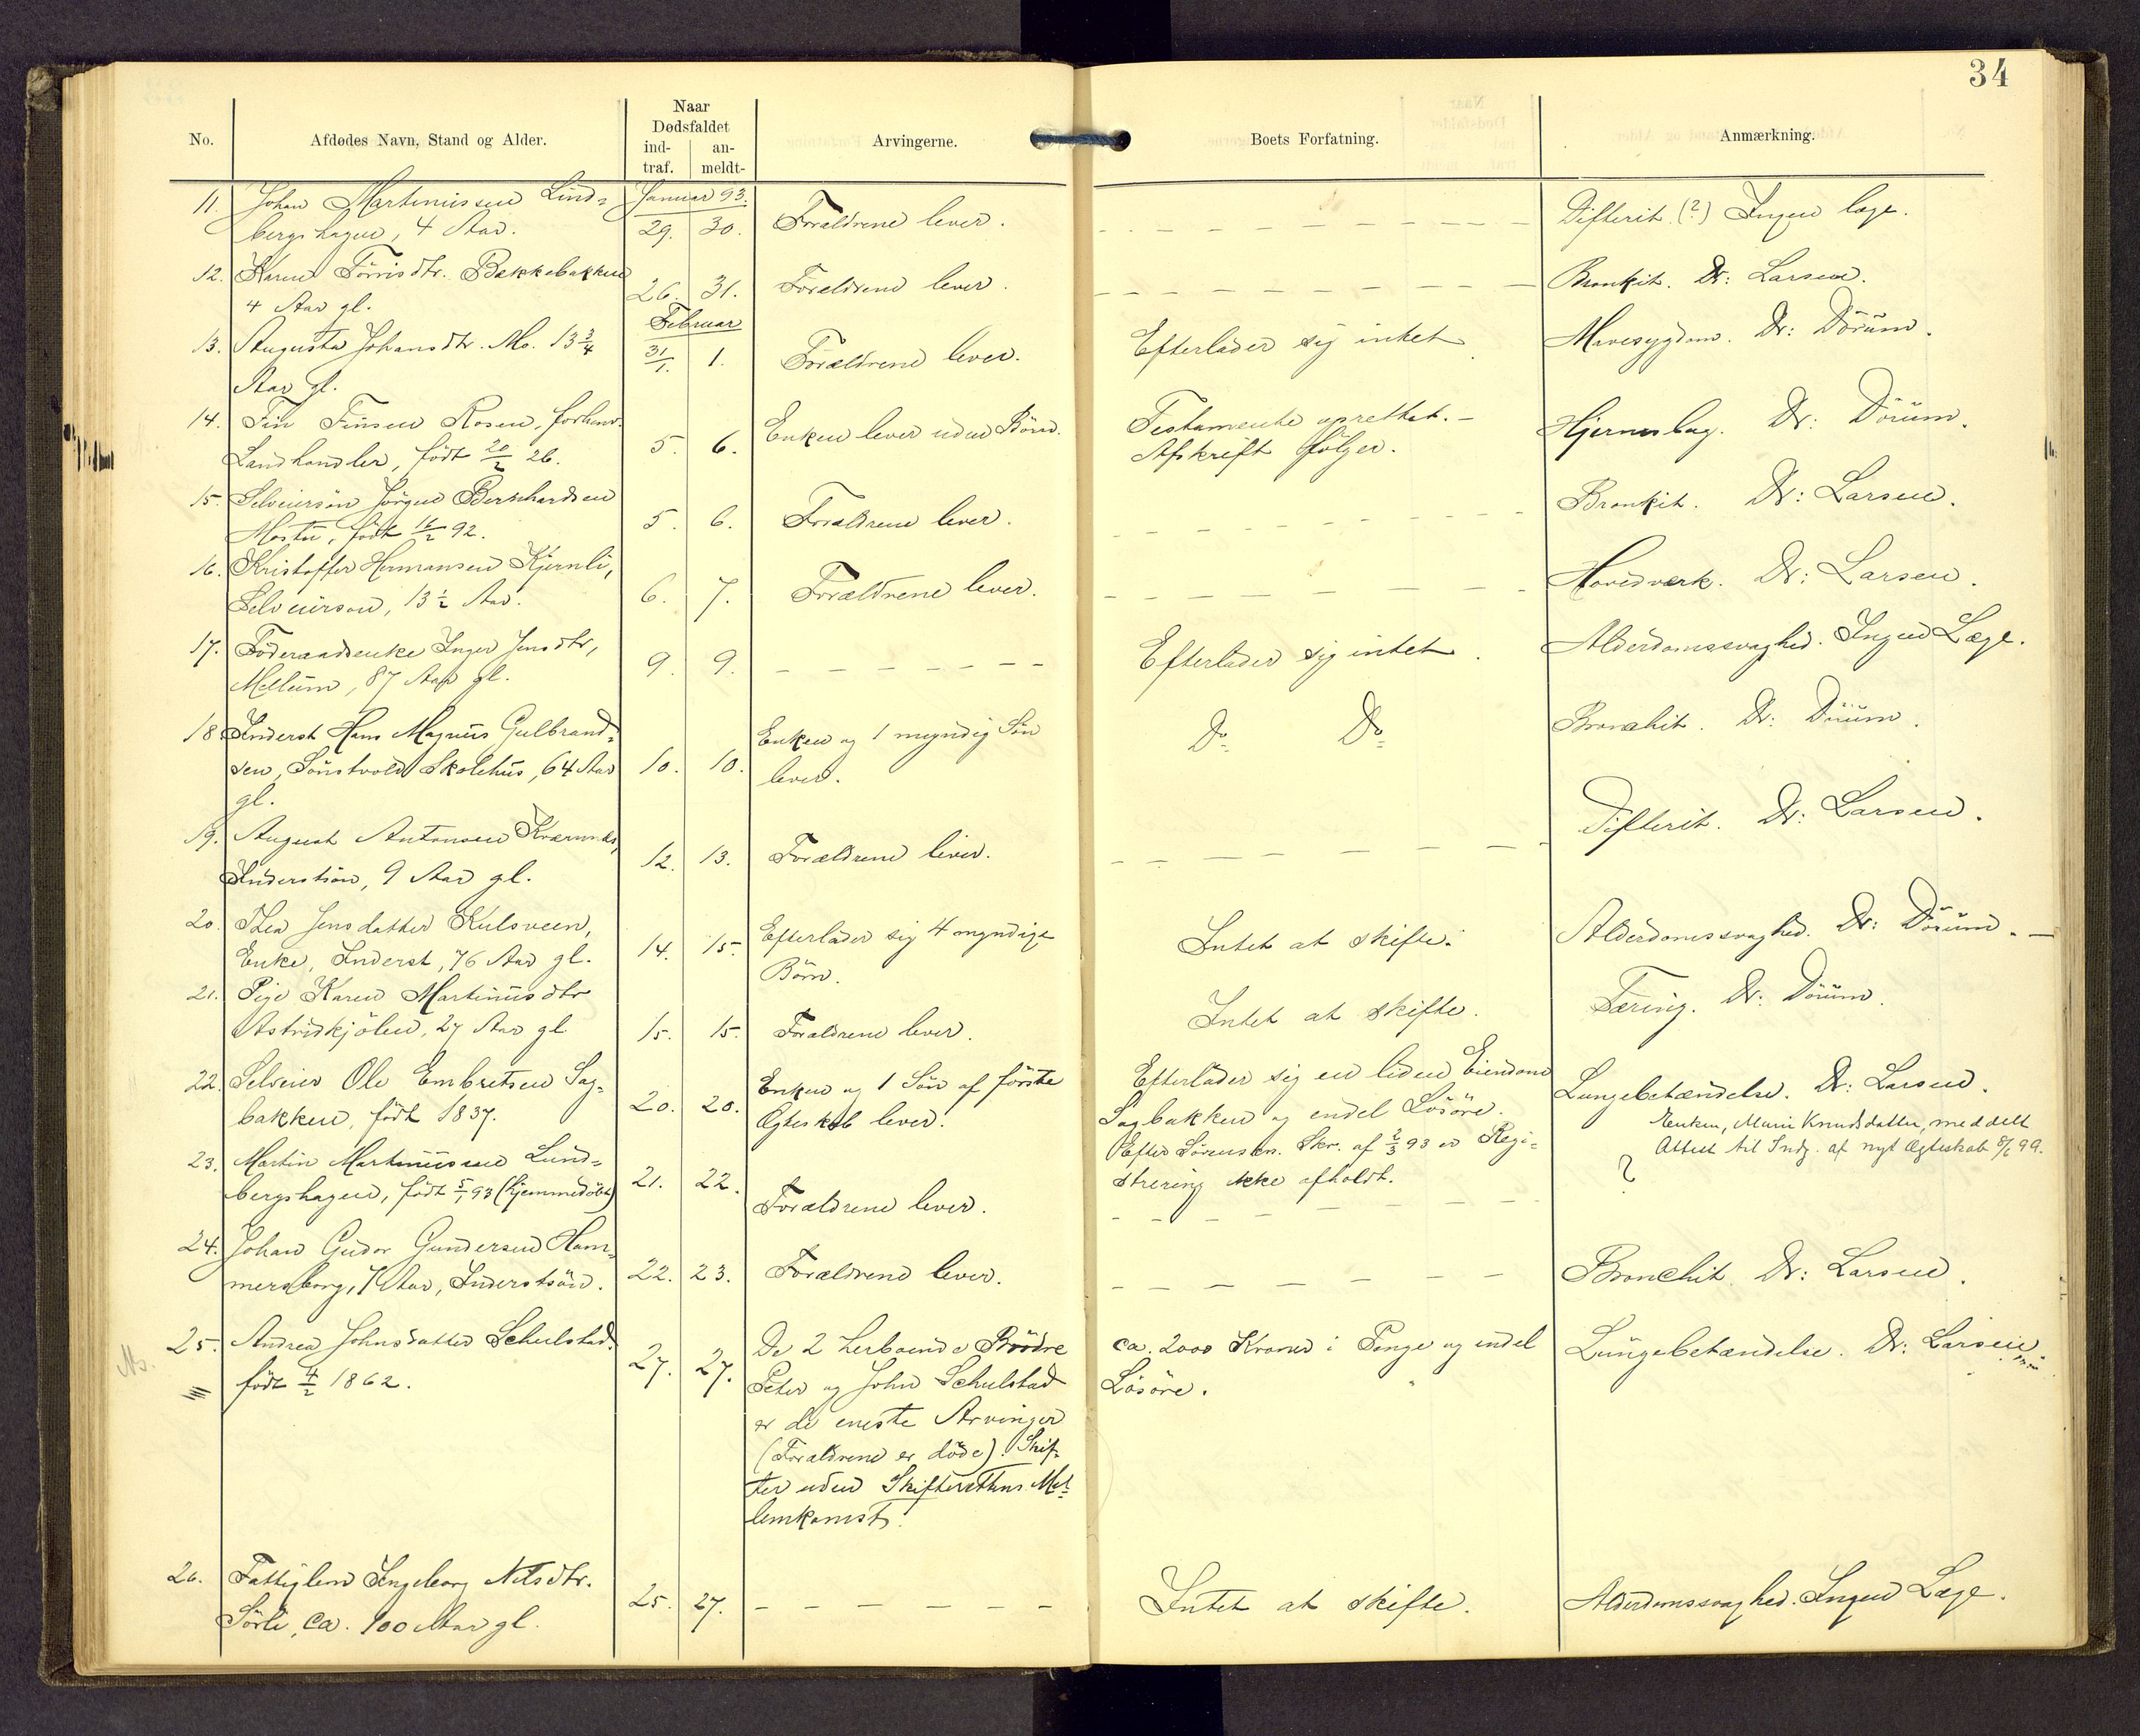 34
No.
Afdødes Navn, Stand og Alder.
Naar
Dødsfaldet
ind-
traf.
an-
meldt-
Arvingerne.
Boets Forfatning.
Anmærkning.
11. Johan Martinussen Lind=
bergshagen, 4 Aar.
Januar 93.
29. 30.
Forældrene lever.
Difterit (?) Ingen læge.
12. Karen Törrisdtr. Bakkebakken
4 Aar gl.
26. 31.
Forældrene lever.
Bronkit. Dr: Larsen.
Februar
13. Augusta Johansdtr. Mo. 13 3/4
Aar gl.
31/1. 1.
Forældrene lever.
Efterlader sig intet.
Mavesygdom. Dr: Dörum.
14. Fin Finsen Rosen, forhenv.
Landhandler, födt 20/2 26.
5. 6.
Enken lever uden Börn.
Testamente oprettet.-
Afskrift fölger.
Hjerneslag. Dr: Dörum.
15. Selveiersön Jörgen Bernhardsen
Mostu, födt 16/2 92.
5. 6.
Forældrene lever.
Bronkit. Dr: Larsen.
16. Kristoffer Hermansen Kjernli,
Selveiersøn, 13 1/2 Aar.
6. 7.
Forældrene lever.
Hovedværk. Dr: Larsen.
17. Föderaadsenke Inger Jensdtr,
Mellum, 87 Aar gl.
9. 9. - - - - - - -
Efterlader sig intet.
Alderdomssvaghed. Ingen Læge.
18. Inderst Hans Magnus Gulbrand=
sen, Sönstvold Skolehus, 64 Aar
gl.
10. 10.
Enken og 1 myndig Sön
lever.
Do Do
Bronchit. Dr: Dörum.
19. August Antonsen Kværnnæs,
Inderstsön, 9 Aar gl.
12. 13.
Forældrene lever.
Difterit. Dr: Larsen.
20. Thea Jensdatter Kulsveen,
Enke, Inderst, 76 Aar gl.
14. 15.
Efterlader sig 4 myndige
Börn.
Intet at skifte.
Alderdomssvaghed. Dr: Dörum.-
21. Pige Karen Martinusdtr
Astridkjölen, 27 Aar gl
15. 15.
Forældrene lever.
Intet at skifte.
Tæring. Dr: Dörum.
22. Selveier Ole Embretsen Sag=
bakken, födt 1837.
20. 20.
Enken og 1 Sön af förste
Ægteskab lever.
Efterlader sig en liden Eiendom
Sagbakken og endel Lösöre.
Efter Sörensens. Skr. af 2/3 93 er Regi=
strering ikke afholdt.
Lungebetændelse. Dr: Larsen.
Enken, Marie Knudsdatter, meddelt
Attest til Indg. af nyt Ægteskab 8/6 99.
23. Martin Martinussen Lind=
bergshagen, födt 5/1 93 (hjemmedöbt)
21. 22.
Forældrene lever.
?
24. Johan Gudor Gundersen Ham=
mersborg, 7 Aar, Inderstsön.
22. 23.
Forældrene lever.
Bronchit Dr: Larsen.
25. Andrea Johnsdatter Schulstad.
födt 4/2 1862.
27. 27.
De 2 herboende Brödre
Peter og John Schulstad
er de eneste Arvinger
(Forældrene er döde). Skif-
ter uden Skifterettens Mel=
lemkomst.
ca. 2000 Kroner i Penge og endel
Lösöre.
Lungebetændelse. Dr: Larsen.
26. Fattiglem Ingeborg Nilsdtr.
Sörli, ca. 100 Aar gl.
25. 27. - - - - - -
Intet at skifte.
Alderdomssvaghed. Ingen Læge.